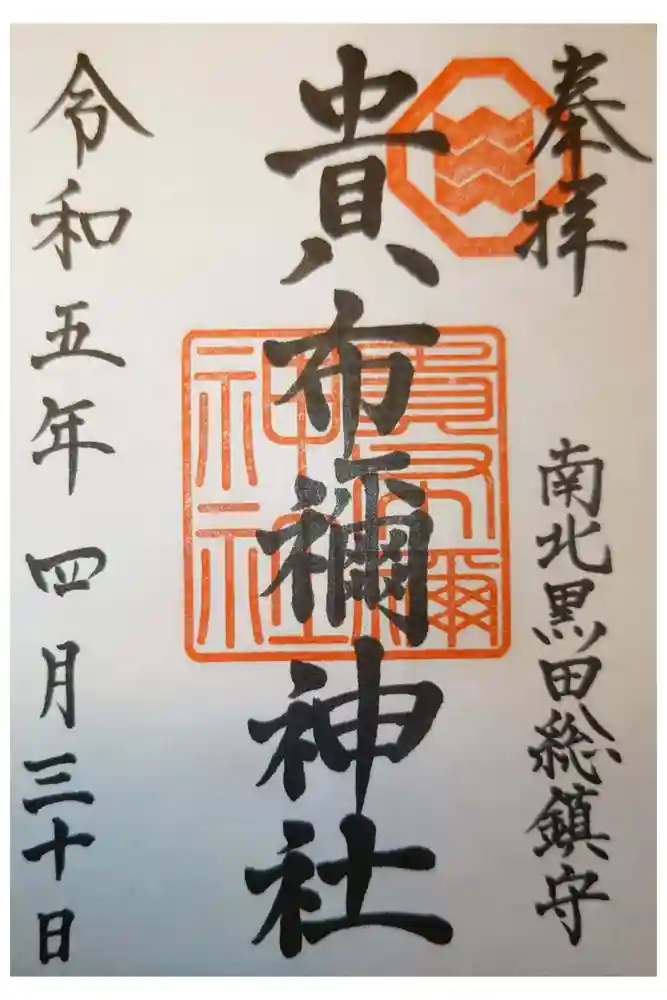 奉拝
南北黒田総鎮守
貴布禰神社
貴布禰神社
令和五年四月三十日